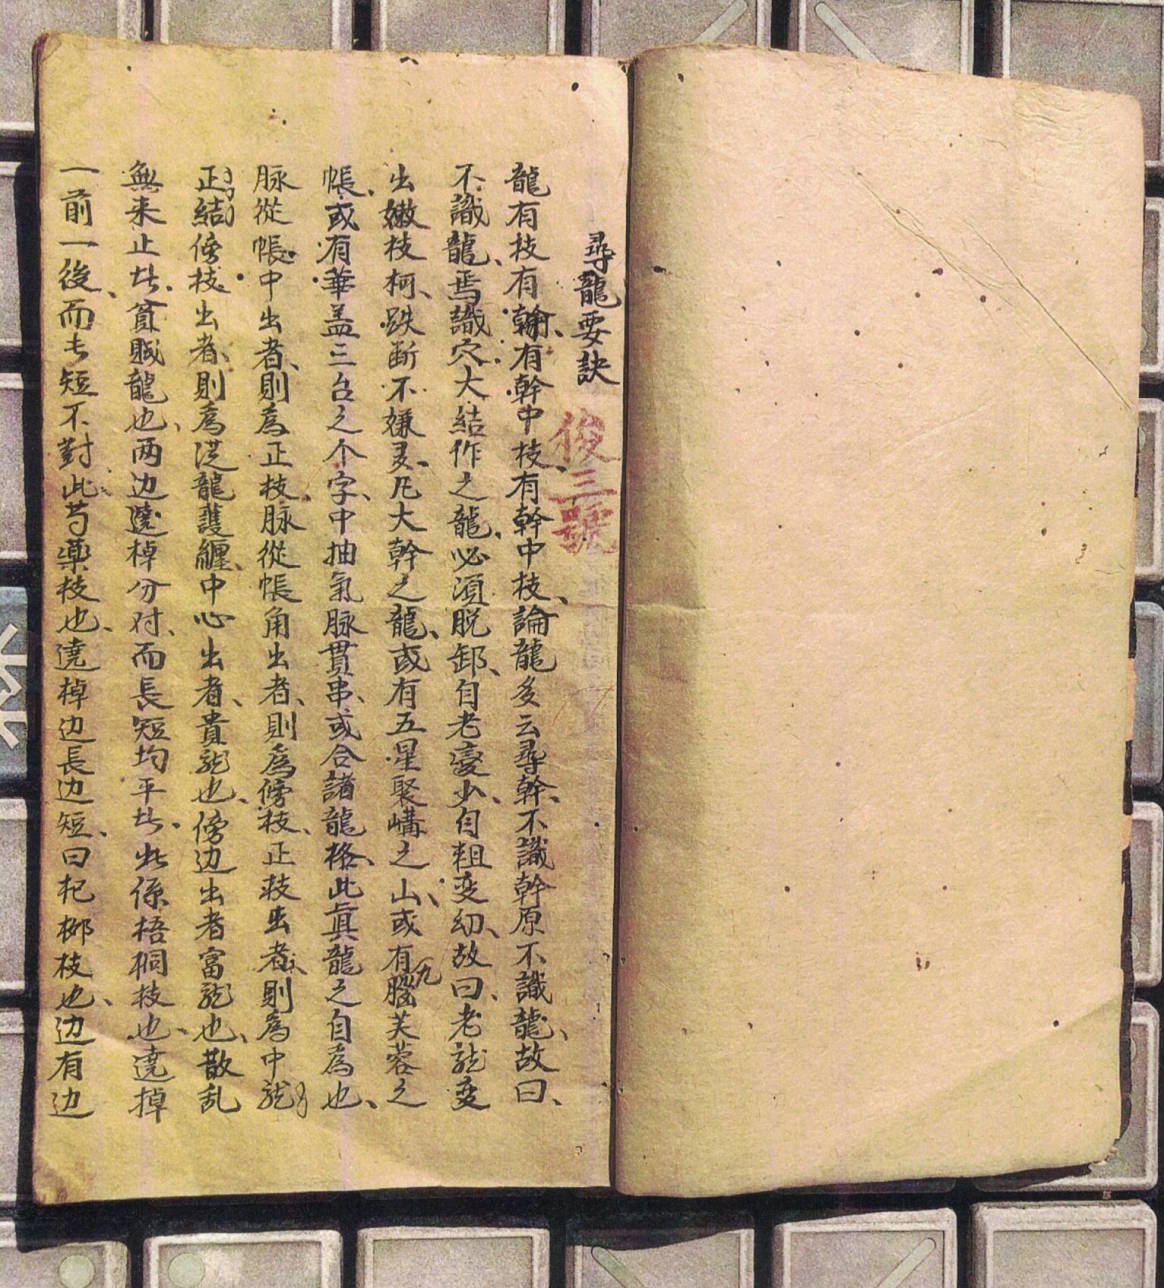 尋龍要訣
俊三號
龍有枝有幹有幹中枝有幹中枝論龍多云尋幹不識幹原不識龍故曰
不識龍焉識穴大結作之龍必須脱卸自老變少自粗变幼故曰老龙变
出嫩枝柯跌断不嫌多凡大幹之龍或有五星聚講之山或有腦芙蓉之
帳或有華盖三台之个字中抽氣脉貫串或合諸龍格此眞龍之自為也
脉從帳中出者則為正枝脉從帳角出者則為傍枝正枝出者則為中龙
正結傍枝出者則為從龍護纏中心出者貴龙也傍边出者富龙也散乱
無来止者貧賤龍也两边遶棹分对而長短均平者此係梧桐枝也遶棹
一前一後而長短不對此芍藥枝也遶棹边長边短曰杞柳枝也边有边